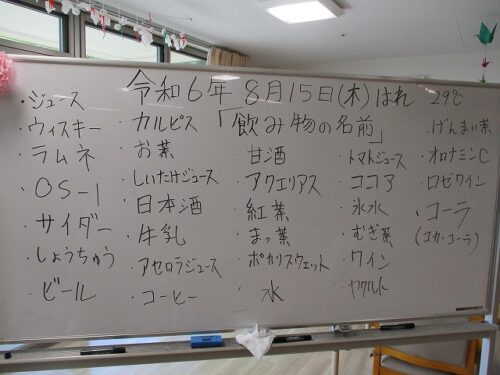 令和6年 8月15日(木) はれ 29℃
「飲み物の名前」
・ジュース
・ウィスキー
・ラムネ
・OS-1
・サイダー
・しょうちゅう
・ビール
・カルピス
・お茶
・しいたけジュース
・日本酒
・牛乳
・アセロラジュース
・コーヒー
・甘酒
・アクエリアス
・紅茶
・まっ茶
・ポカリスウェット
・水
・トマトジュース
・ココア
・氷水
・むぎ茶
・ワイン
・ヤクルト
・げんまい茶
・オロナミンC
・ロゼワイン
・コーラ
(コカ・コーラ)